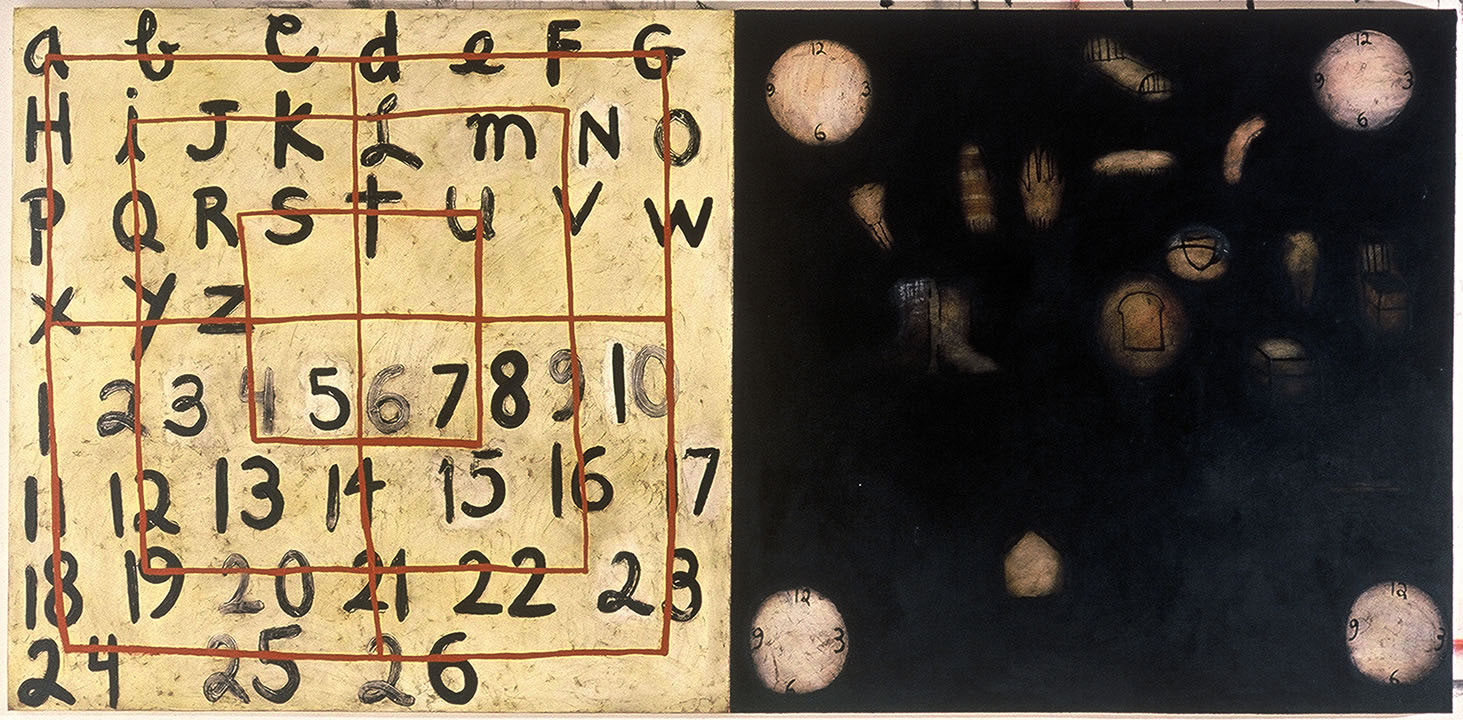 a b c d e F G
H i J K L m N O
P Q R S t U V W
x y z
1 2 3 4 5 6 7 8 9 10
11 12 13 14 15 16 17
18 19 20 21 22 23
24 25 26
12
9 3
6
12
9 3
6
12
9 3
6
12
9 3
6